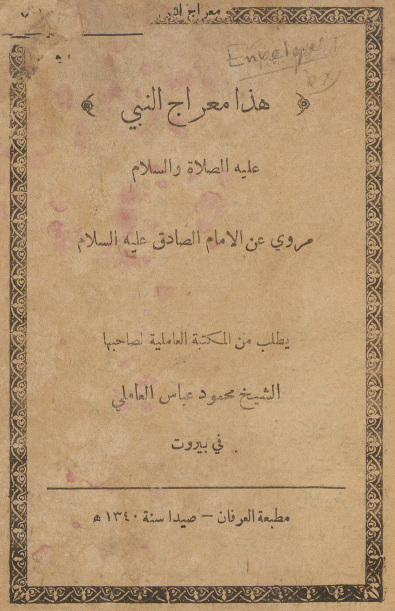 معراج
﴿ هذا معراج النبي ﴾
عليه الصلاة والسلام
مروي عن الامام الصادق عليه السلام
يطلب من المكتبة العاملية لصاحبها
الشيخ محمود عباس العاملي
في بيروت
مطبعة العرفان – صيدا سنة ١٣٤٠ ھ